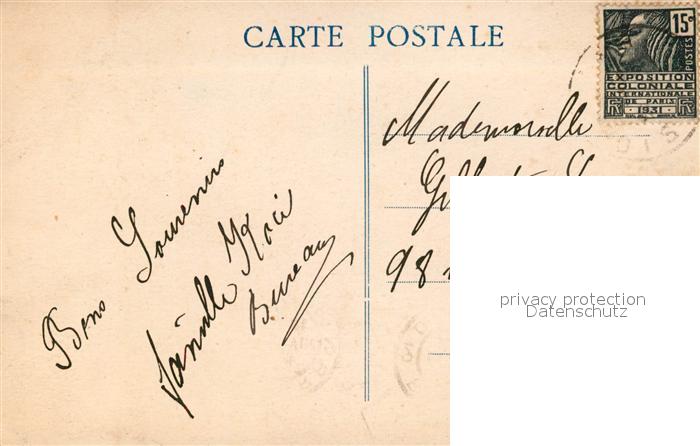 CARTE POSTALE
15c
POSTES
EXPOSITION
COLONIALE
INTERNATIONALE
DE PARIS
1931
Bons Souvenirs
famille
Bureau
Mademoiselle
98
privacy protection
Datenschutz